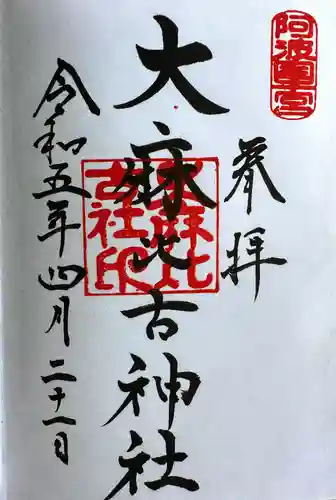 阿波國一宮
奉拝
大麻比古神社
大麻比
古社印
令和五年四月二十一日